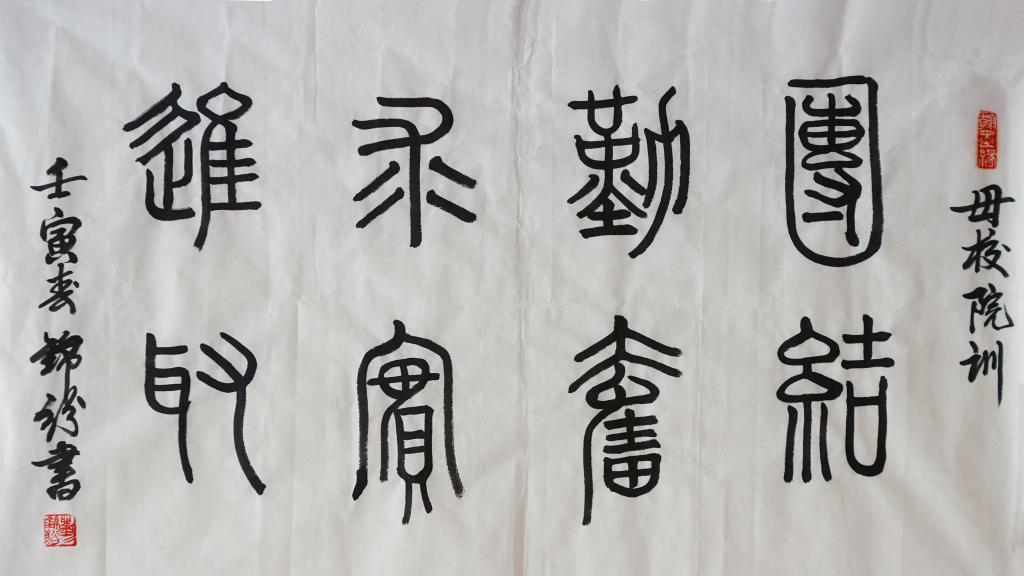 母校院训
團結
勤奮
求實
進取
壬寅春 錦 書